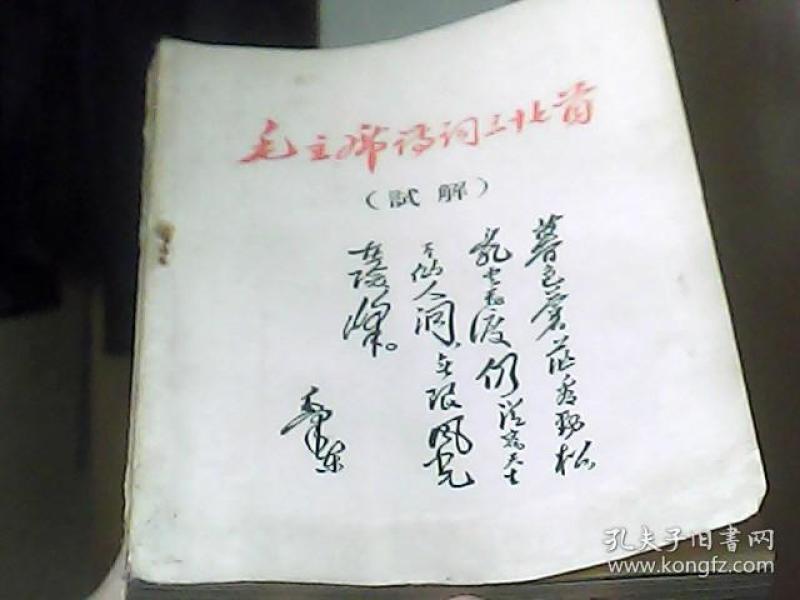 毛主席诗词三十七首
（試解）
暮色蒼茫看勁松
亂雲飛渡仍從容天生
一个仙人洞，無限風光
在險峰。
毛澤東
孔夫子旧書网
www.kongfz.com